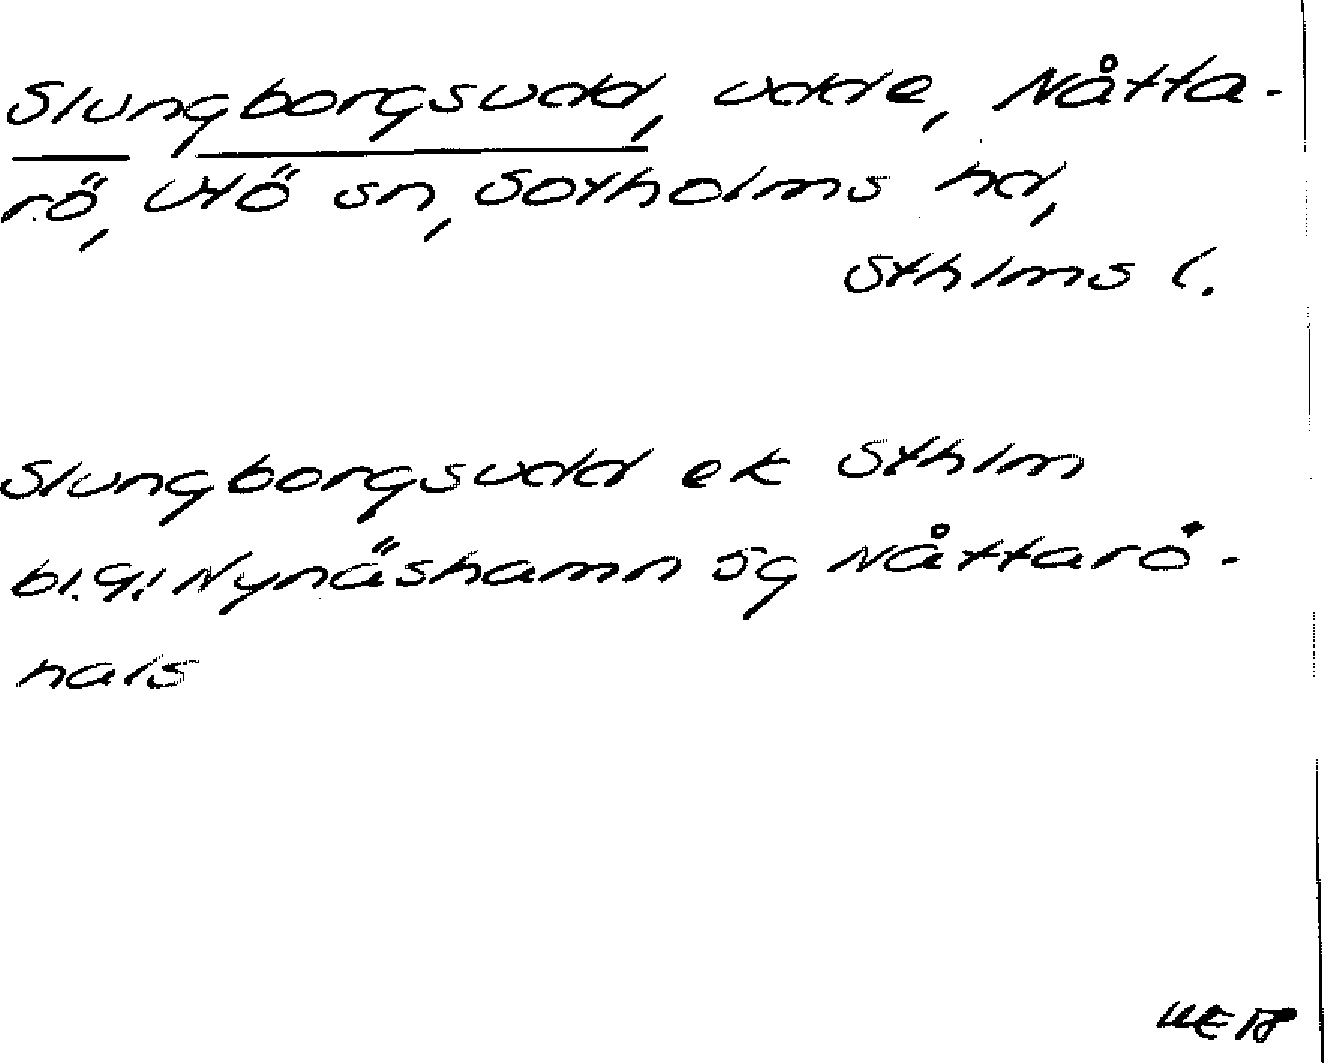 Slungborgsudd, udde, Nåtta-
rö, Utö sn, Sotholms hd,
Sthlms l.
Slungborgsudd ek Sthlm
bl. 9: Nynäshamn sg Nåttarö-
hals